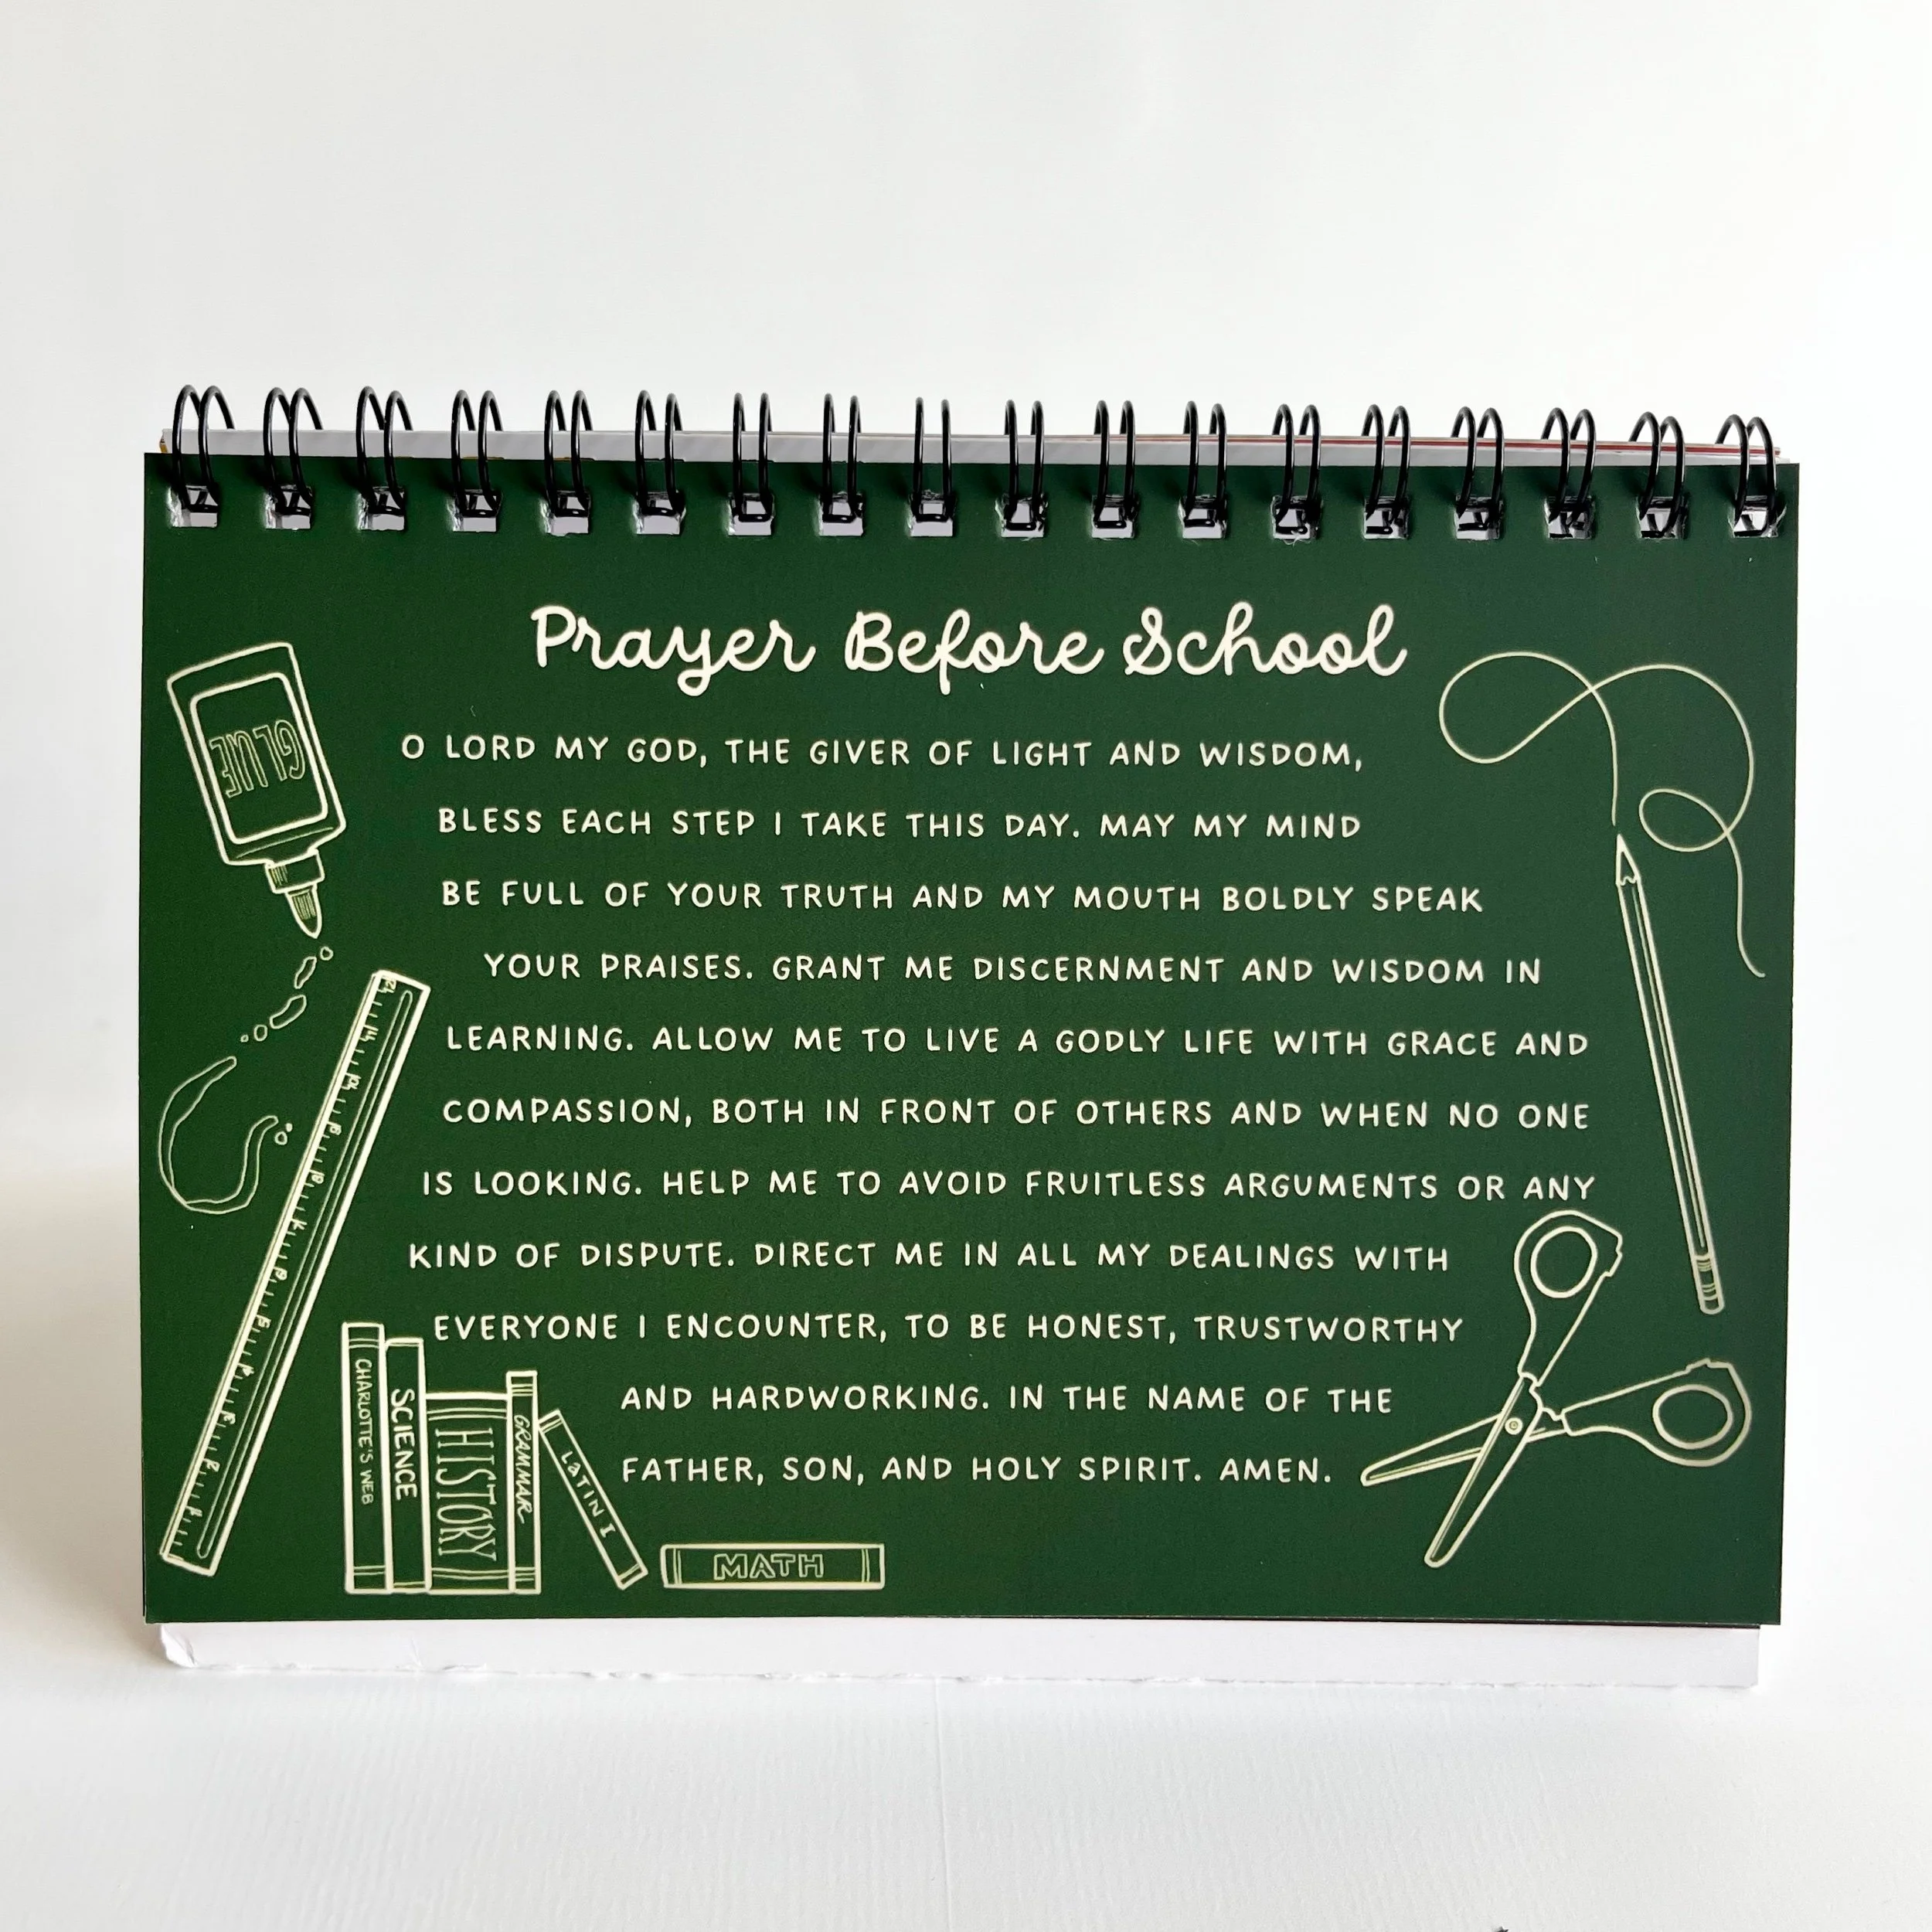 Prayer Before School
O LORD MY GOD, THE GIVER OF LIGHT AND WISDOM,
BLESS EACH STEP I TAKE THIS DAY. MAY MY MIND
BE FULL OF YOUR TRUTH AND MY MOUTH BOLDLY SPEAK
YOUR PRAISES. GRANT ME DISCERNMENT AND WISDOM IN
LEARNING. ALLOW ME TO LIVE A GODLY LIFE WITH GRACE AND
COMPASSION, BOTH IN FRONT OF OTHERS AND WHEN NO ONE
IS LOOKING. HELP ME TO AVOID FRUITLESS ARGUMENTS OR ANY
KIND OF DISPUTE. DIRECT ME IN ALL MY DEALINGS WITH
EVERYONE I ENCOUNTER, TO BE HONEST, TRUSTWORTHY
AND HARDWORKING. IN THE NAME OF THE
FATHER, SON, AND HOLY SPIRIT. AMEN.
GLUE
1 2 3 4 5 6 7 8 9 10 11 12
CHARLOTTE'S WEB
SCIENCE
HISTORY
GRAMMAR
LATIN I
MATH